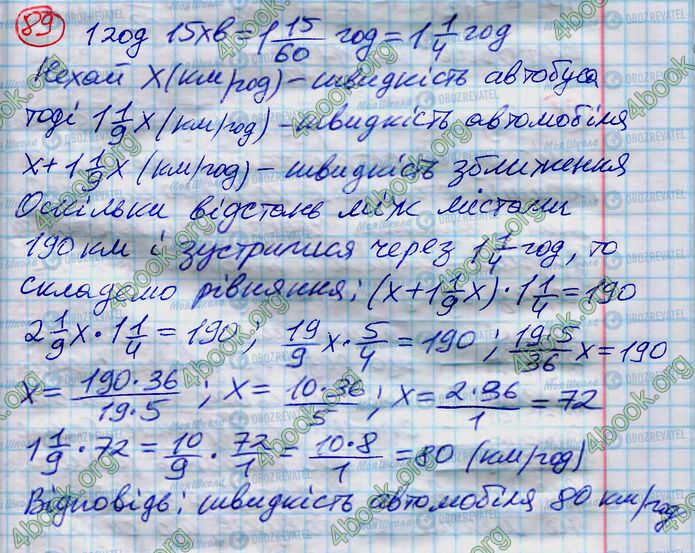 89
1 год 15 хв = 1 15/60 год = 1 1/4 год
Нехай х (км/год) – швидкість автобуса
тоді 1 1/9 х (км/год) – швидкість автомобіля
х + 1 1/9 х (км/год) – швидкість зближення
Оскільки відстань між містами
190 км і зустрілися через 1 1/4 год, то
складемо рівняння: (х + 1 1/9 х) · 1 1/4 = 190
2 1/9 х · 1 1/4 = 190; 19/9 х · 5/4 = 190; 19·5/36 х = 190
х = 190·36/19·5; х = 10·36/5; х = 2·36/1 = 72
1 1/9 · 72 = 10/9 · 72/1 = 10·8/1 = 80 (км/год)
Відповідь: швидкість автомобіля 80 км/год
4book.org
Моя Школа
OBOZREVATEL